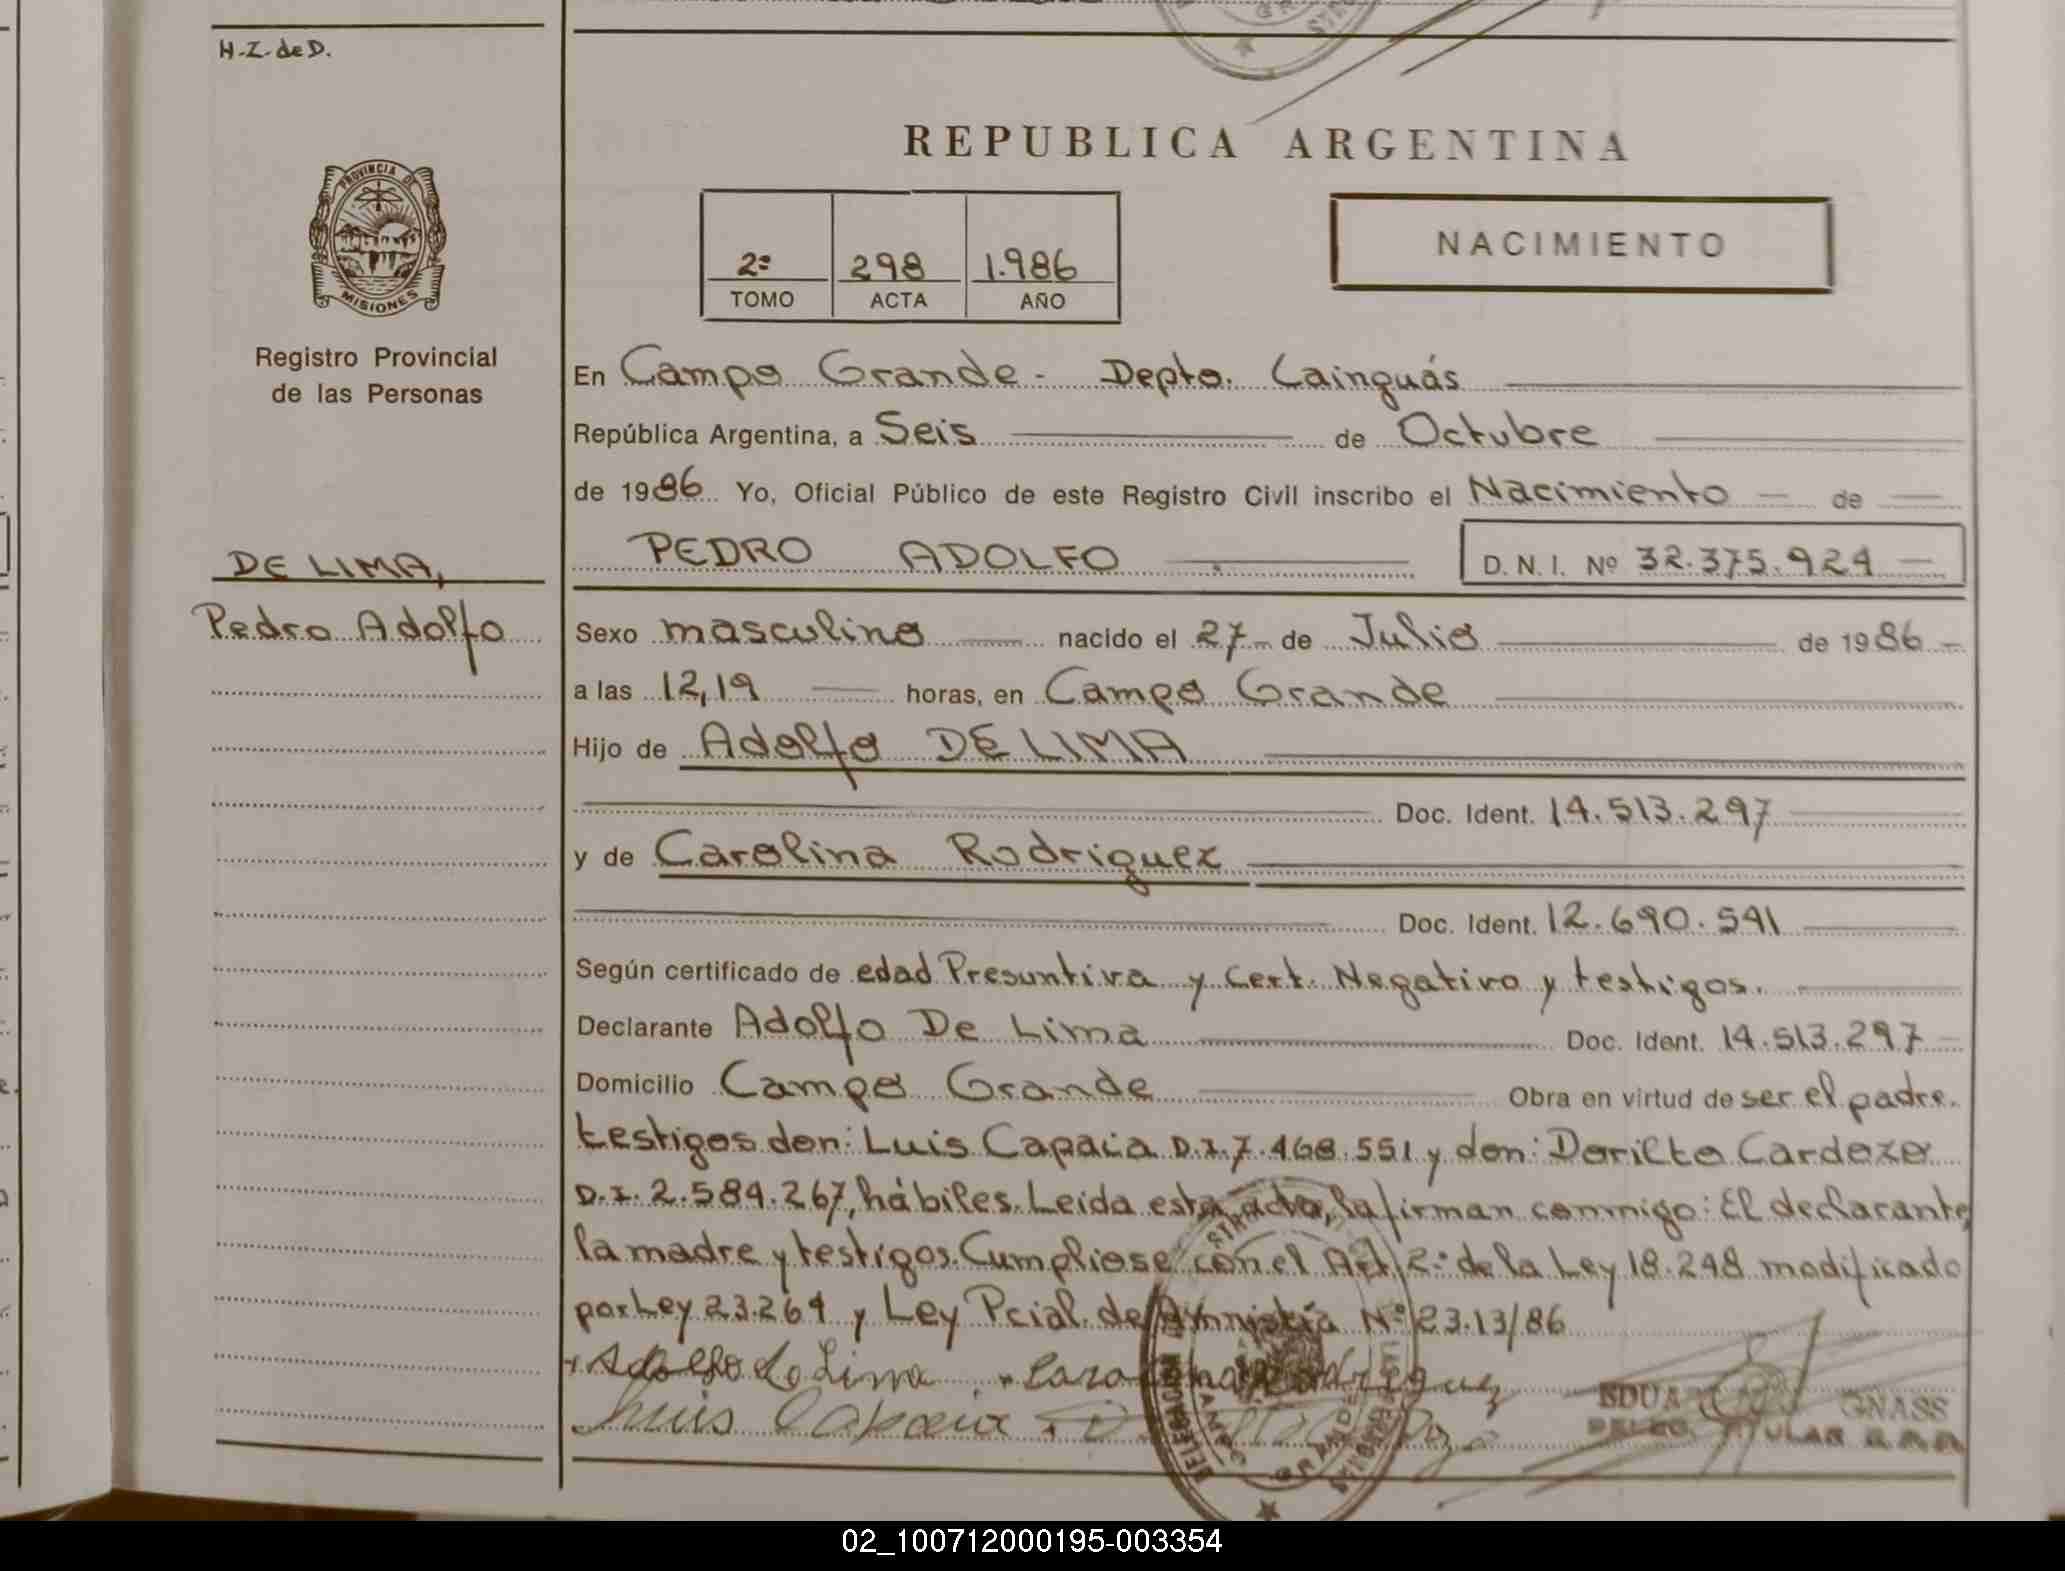 H.Z. de D.
REPUBLICA ARGENTINA
PROVINCIA DE
MISIONES
Registro Provincial
de las Personas
2º 298 1.986
TOMO ACTA AÑO
NACIMIENTO
En Campo Grande - Depto. Cainguás
República Argentina, a Seis de Octubre
de 1986 Yo, Oficial Público de este Registro Civil inscribo el Nacimiento de
PEDRO ADOLFO D. N. I. Nº 32.375.924
DE LIMA,
Pedro Adolfo
Sexo masculino nacido el 27 de Julio de 1986
a las 12,19 horas, en Campo Grande
Hijo de Adolfo DE LIMA
Doc. Ident. 14.513.297
y de Carolina Rodriguez
Doc. Ident. 12.690.591
Según certificado de edad Presuntiva y Cert. Negativo y testigos.
Declarante Adolfo De Lima Doc. Ident. 14.513.297
Domicilio Campo Grande Obra en virtud de ser el padre.
testigos don: Luis Capacia D.I. 7.468.551 y don: Dorilto Cardozo
D.I. 2.584.267, hábiles. Leída esta acta, la firman conmigo: El declarante,
la madre y testigos. Cumpliose con el Art. 2º de la Ley 18.248 modificado
por Ley 23.264 y Ley Pcial. de Amnistía Nº 23.13/86
Adolfo de Lima
Luis Capacia
GNASS
02_100712000195-003354